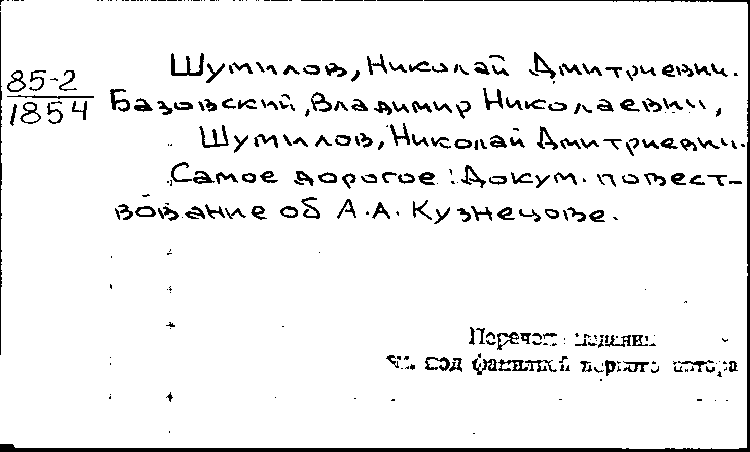 Шумилов, Николай Дмитриевич.
85-2
1854
Базовский, Владимир Николаевич,
Шумилов, Николай Дмитриевич.
Самое дорогое: Докум. повест-
вование об А.А. Кузнецове.
Перечень изданий
см. под фамилией первого автора